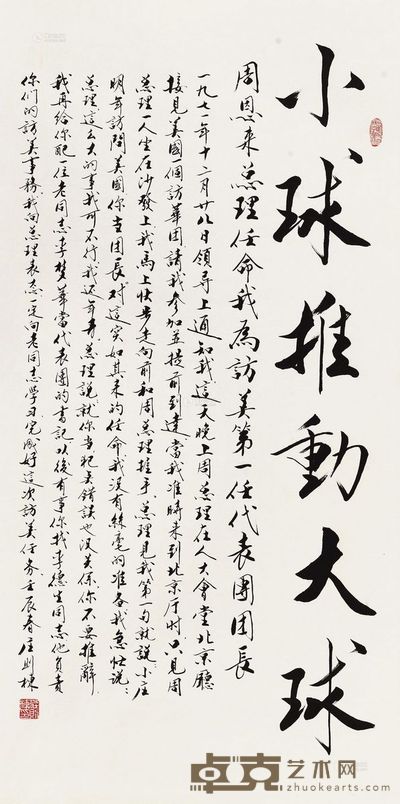 小球推動大球
周恩来总理任命我為訪美第一任代表團團長
一九七一年十二月廿八日領导上通知我這天晚上周总理在人大會堂北京廳
接見美國一個訪華團請我參加並提前到達當我准時来到北京厅时只見周
总理一人坐在沙發上我馬上快步走向前和周总理握手总理見我第一句就說小庄
明年訪問美國你去當团長对這突如其来的任命我没有絲毫的准备我急忙說
总理這么大的事我可不行我还年青总理說就你当犯美錯误也没关係你不要推辭
我再給你配一位老同志李梦華當代表團的書記以後有事你找李德生同志他負責
你們的訪美事務我向总理表态一定向老同志学习完成好這次訪美任务壬辰春庄則棟
卓克艺术网
www.zhuokearts.com